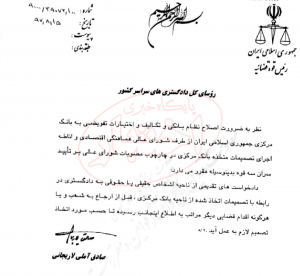 بسم الله الرحمن الرحیم
شماره: ۹۰۰۰/۳۹۰۷۲/۱۰۰
تاریخ: ۹۷/۸/۱۵
پیوست:
طبقه‌بندی:
جمهوری اسلامی ایران
رئیس قوه قضائیه
رؤسای کل دادگستری های سراسر کشور
نظر به ضرورت اصلاح نظام بانکی و تکالیف و اختیارات تفویضی به بانک
مرکزی جمهوری اسلامی ایران از طرف شورای عالی هماهنگی اقتصادی و
اجرای تصمیمات متخذه بانک مرکزی در چارچوب مصوبات شورای عالی
سران سه قوه بدینوسیله مقرر می دارد:
دادخواست های تقدیمی از ناحیه اشخاص حقیقی یا حقوقی به دادگستری در
رابطه با تصمیمات اتخاذ شده از ناحیه بانک مرکزی، قبل از ارجاع به شعب و یا
هرگونه اقدام قضایی دیگر مراتب به اطلاع اینجانب رسیده تا حسب مورد اتخاذ
تصمیم لازم به عمل آید.
صادق آملی لاریجانی